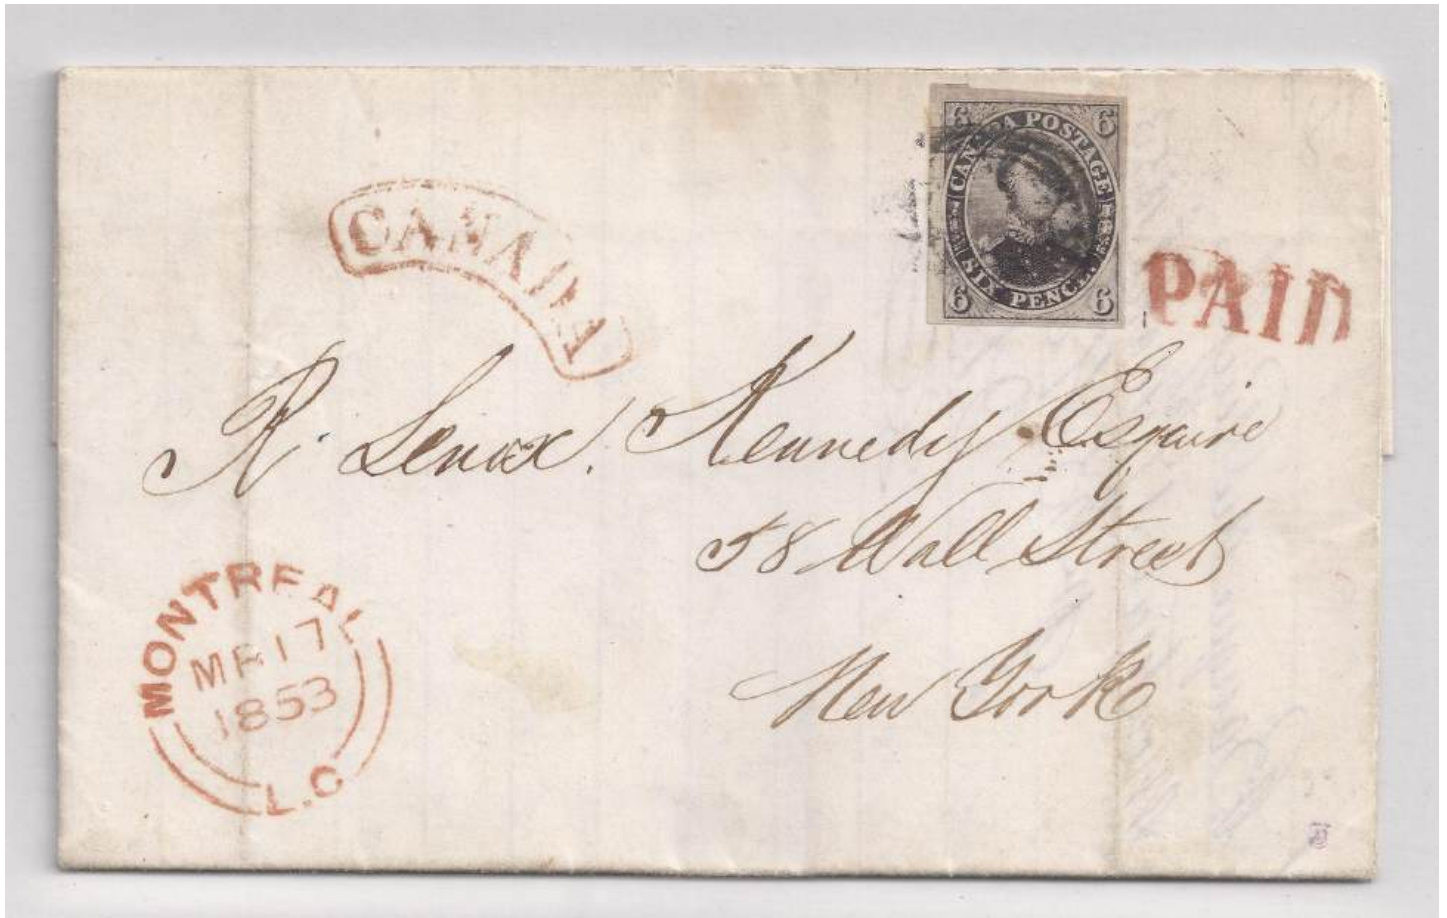 6 CANADA POSTAGE 6
6 SIX PENCE 6
CANADA
PAID
R. Lenox Kennedy Esquire
58 Wall Street
New York
MONTREAL
MR 17
1853
L.C